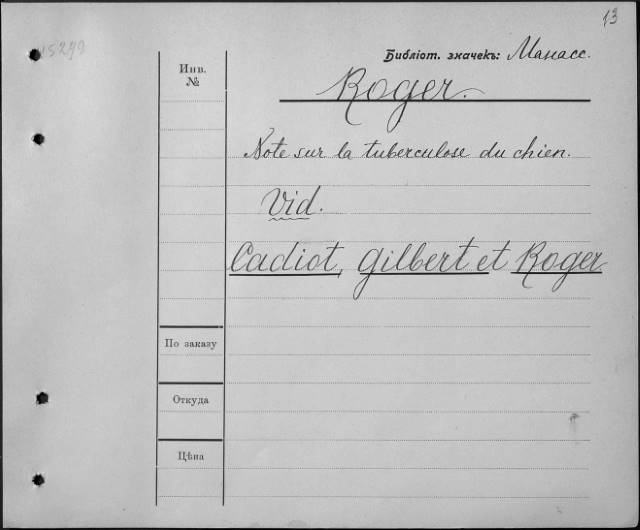 13
Библіот. значекъ: Манасс.
Инв.
№
Roger.
Note sur la tuberculose du chien.
Vid.
Cadiot, Gilbert et Roger
По заказу
Откуда
Цѣна